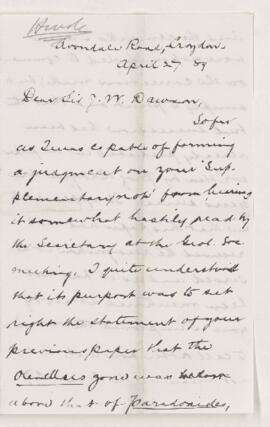 Hinde
Avondale Road, Croydon
April 27 89
Dear Sir J. W. Dawson,
So far
as I was capable of forming
a judgment on your 'Sup-
plementary note' from hearing
it somewhat hastily read by
the Secretary at the Geol. Soc.
meeting, I quite understood
that its purport was to set
right the statement of your
previous paper that the
Olenellus zone was
above that of Paradoxides,